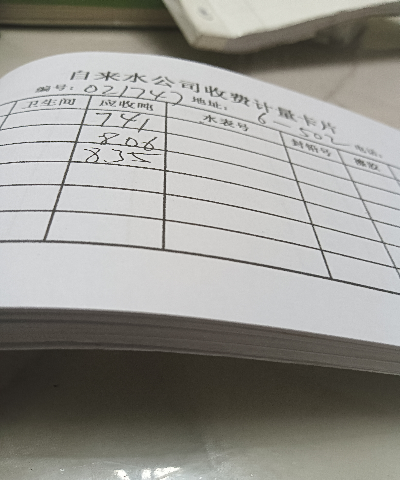 自来水公司收费计量卡片
编号：021747 地址：6-502 电话：
卫生间 应收吨 水表号 封铅号 实收
741
806
835